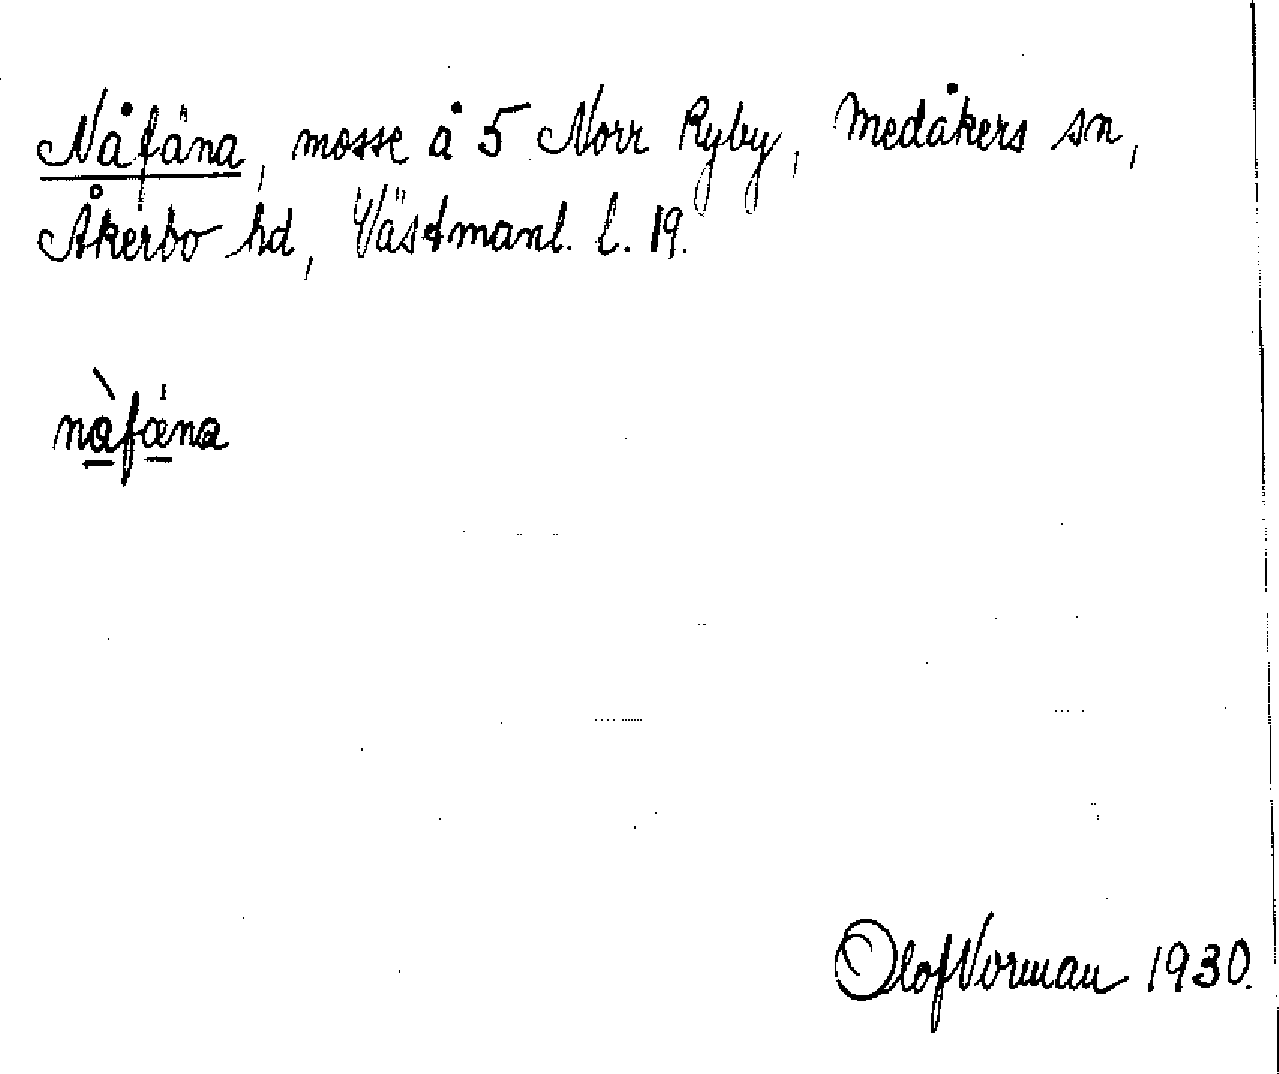 Nåfäna, mosse å 5 Norr Ryby, Medåkers sn,
Åkerbo hd, Västmanl. l. 19.
nàfæ̀na
Olof Norman 1930.